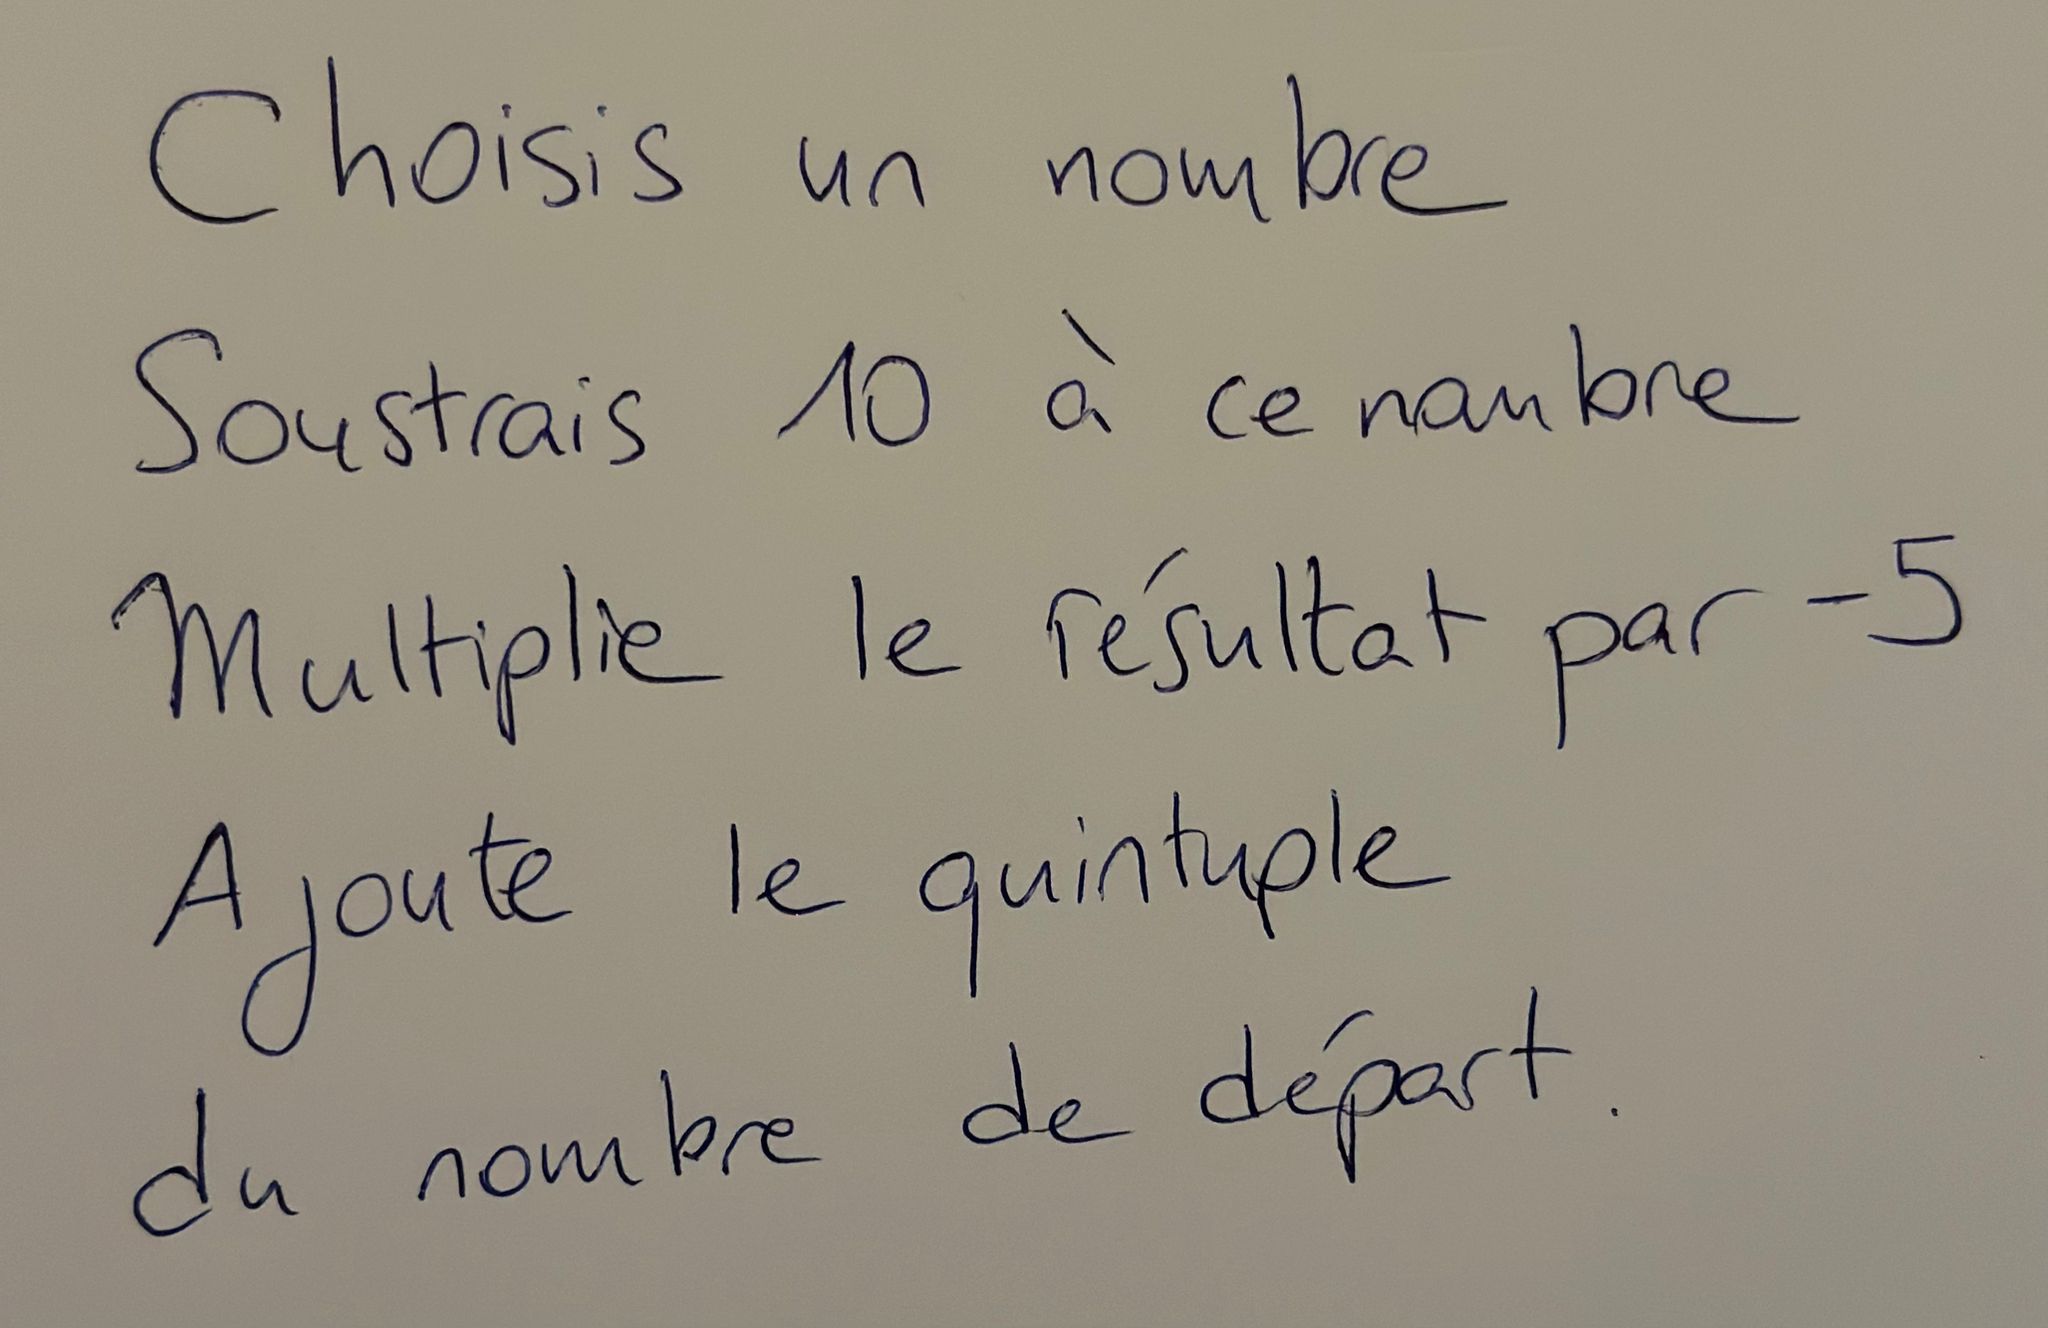 Choisis un nombre
Soustrais 10 à ce nombre
Multiplie le résultat par -5
Ajoute le quintuple
du nombre de départ.